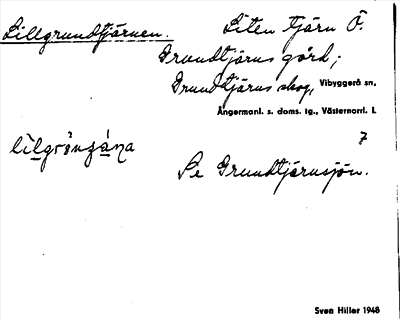 Lillgrundtjärnen. Liten tjärn Ö.
Grundtjärns gård;
Grundtjärns skog, Vibyggerå sn,
Ångermanl. s. doms. tg., Västernorrl. l.
7
Se Grundtjärnsjön.
Sven Hiller 1948